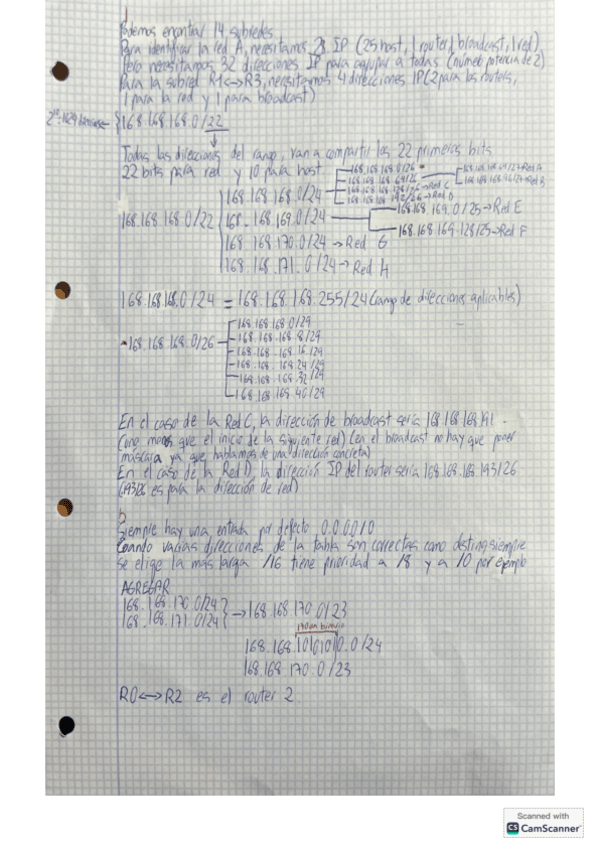 1
Podemos encontrar 14 subredes.
Para identificar la red A, necesitamos 28 IP (25 host, 1 router, 1 broadcast, 1 red).
Pero necesitamos 32 direcciones IP para agrupar a todas (número potencia de 2)
Para la subred R1<->R3, necesitamos 4 direcciones IP (2 para los routers,
1 para la red y 1 para broadcast)
168.168.168.0/22
Todas las direcciones del rango, van a compartir los 22 primeros bits
22 bits para red y 10 para host.
168.168.168.0/26
168.168.168.64/26
168.168.168.128/26 -> Red C
168.168.168.192/26 -> Red D
168.168.168.64/27 Red A
168.168.168.96/27 Red B
168.168.168.0/22
168.168.168.0/24
168.168.169.0/24
168.168.169.0/25 -> Red E
168.168.169.128/25 -> Red F
168.168.170.0/24 -> Red G
168.168.171.0/24 -> Red H
168.168.168.0/24 = 168.168.168.255/24 (rango de direcciones aplicables)
168.168.168.0/26
168.168.168.0/29
168.168.168.8/29
168.168.168.16/29
168.168.168.24/29
168.168.168.32/29
168.168.168.40/29
En el caso de la Red C, la dirección de broadcast sería 168.168.168.191
(uno menos que el inicio de la siguiente red) (en el broadcast no hay que poner
máscara ya que hablamos de una dirección concreta)
En el caso de la Red D, la dirección IP del router sería 168.168.168.193/26
es para la dirección de red)
b
Siempre hay una entrada por defecto 0.0.0.0/0
Cuando varias direcciones de la tabla son correctas como destino siempre
se elige la más larga /16 tiene prioridad a /8 y a /0 por ejemplo
AGREGAR
168.168.170.0/24
168.168.171.0/24
-> 168.168.170.0/23
170 en binario
168.168.10101010.0/24
168.168.170.0/23
R0<->R2 es el router 2
Scanned with
CS CamScanner